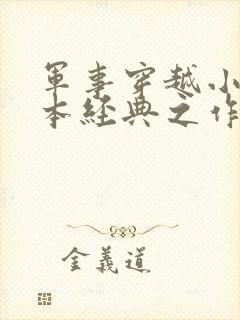 軍事穿越小
本經典之作
金義道